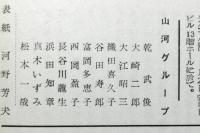 ビル13階ホールに於て。
山河グループ
乾武俊
大崎二郎
大江昭三
織田喜久子
谷田寿郎
富岡多恵子
西岡盈子
長谷川龍生
浜田知章
真木いずみ
松本一哉
表紙 河野芳夫